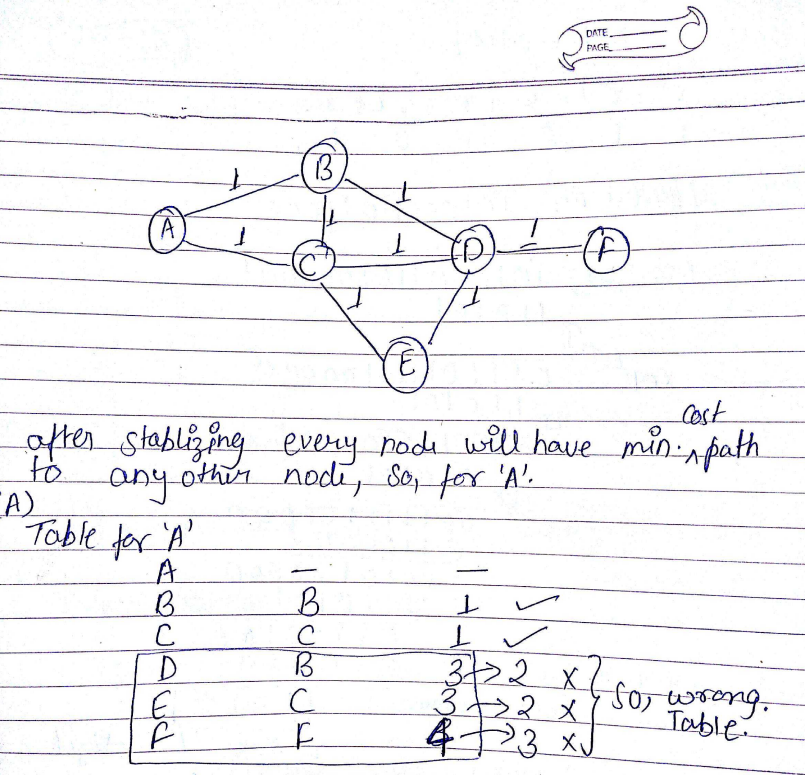 DATE
PAGE
B
1
1
A
1
1
1
1
D
F
C
1
1
E
cost
after stablizing every node will have min. ^ path
to any other node, So, for 'A'.
A)
Table for 'A'
A — —
B B 1 ✓
C C 1 ✓
D B 3 → 2 ×
E C 3 → 2 × So, wrong.
F F 4 → 3 × Table.